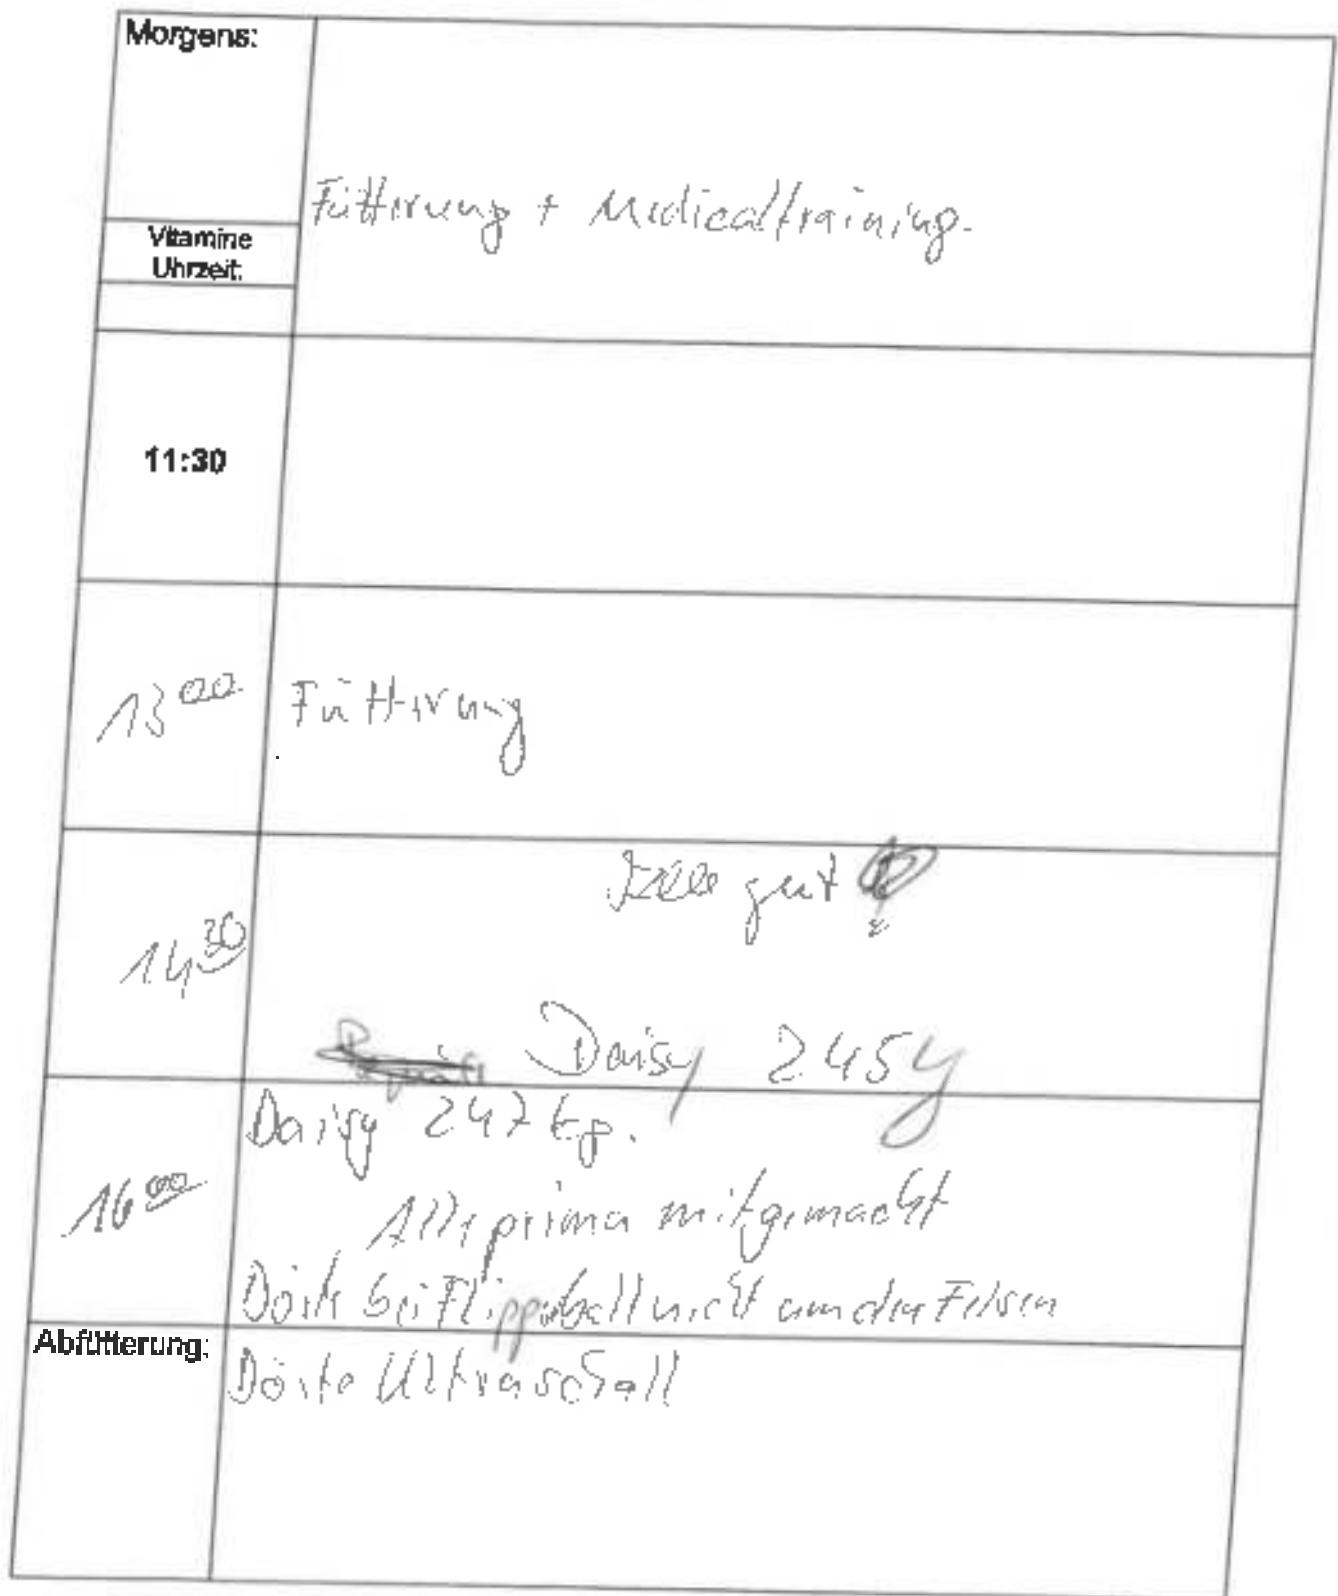 Morgens:
Fütterung + Medicaltraining.
Vitamine
Uhrzeit:
11:30
13 00 Fütterung
Alle gut
14 30
Daisy 245
Daisy 247 kg.
16 00
Alle prima mitgemacht
Dörte bei Flipperball nicht um den Felsen
Abfütterung:
Dörte Ultraschall